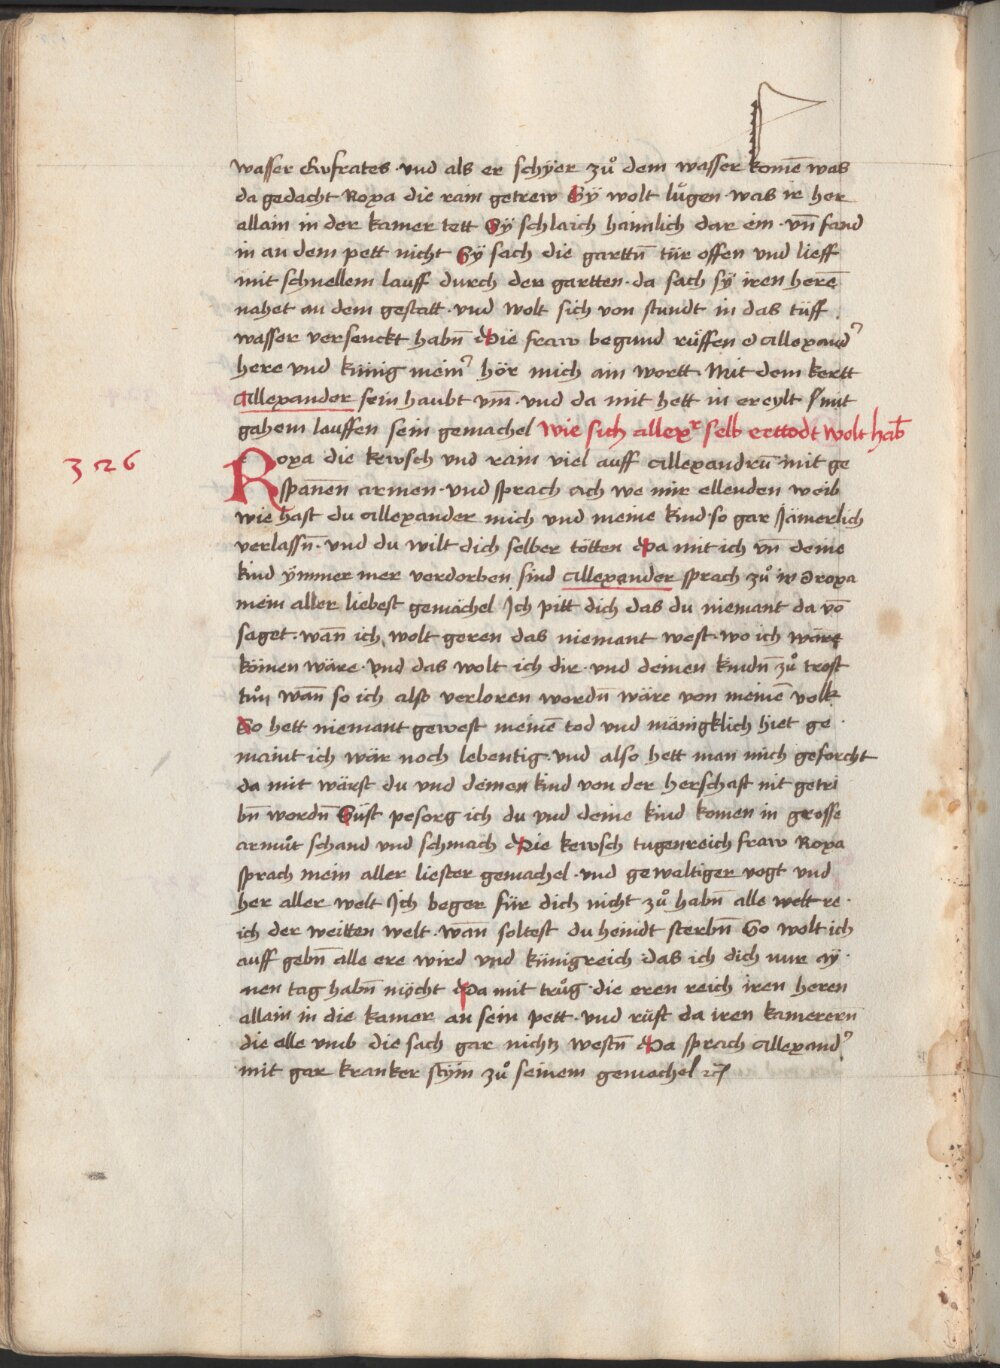 wasser Eufrates · vnd als er schÿer zuͦ dem wasser komē was
da gedacht Roxa die rain getrew Sÿ wolt luͤgen · was ir her
allain in der kamer tett Sÿ schlaich haimlich dar ein · vn̄ fand
in an dem pett nicht Sÿ sach die garttn̄ tür offen vnd lieff
mit schnellem lauff durch den gartten · da sach sÿ iren herē
nahet an dem gestatt · vnd wolt sich von stundt in das tüff
wasser versenckt habn̄ Die fraw begund rüffen o allexand᾽
here vnd künig mein᾽ hör mich ain wortt · Mit dem kertt
Allexander sein haubt vm̄ · vnd da mit hett in ereylt sein mit
gahem lauffen sein gemachel Wie sich allexr selb erttodt wolt hab̄
326
Roxa die kewsch vnd rain viel auff allexandrū mit ge
spānen armen · vnd sprach ach we mir ellenden weib
wie hast du allexander mich vnd meine kind so gar Jämerlich
verlassn̄ · vnd du wilt dich selber tötten Da mit ich vn̄ deine
kind ÿmmer mer verdorben sind allexander sprach zuͦ ir O roxa
mein aller liebest gemächel Ich pitt dich das du niemant da vō
saget · wān ich wolt geren das niemant west · wo ich wäre
kömen wäre · vnd das wolt ich dir · vnd deinen kindn̄ zuͦ trost
tuͦn wān so ich also verloren wordn̄ wäre von meinē volk
So hett niemant gewest meinē tod vnd mänigklich hiet ge ·
maint ich wär noch lebentig · vnd also hett man mich geforcht
da mit wärst du vnd deinen kind von der herschaft nit getri
bn̄ wordn̄ Sust pesorg ich du vnd deine kind komen in grosse
armuͦt schand vnd schmach Die kewsch tugenreich fraw Roxa
sprach mein aller liester gemachel · vnd gewaltiger vogt vnd
her aller welt Ich beger für dich nicht zuͦ habn̄ alle welt re ·
ich der weitten welt · wān soltest du heindt sterbn̄ So wolt ich
auff gebn̄ alle ere wird vnd künigreich das ich dich nur aÿ ·
nen tag habn̄ möcht Da mit truͦg · die eren reich iren heren
allain in die kamer an sein pett · vnd rüft da iren kamerern
die alle vmb die sach gar nichtz westn̄ Da sprach allexand᾽
mit gar kranker stym̄ zuͦ seinem gemachel ꝛc